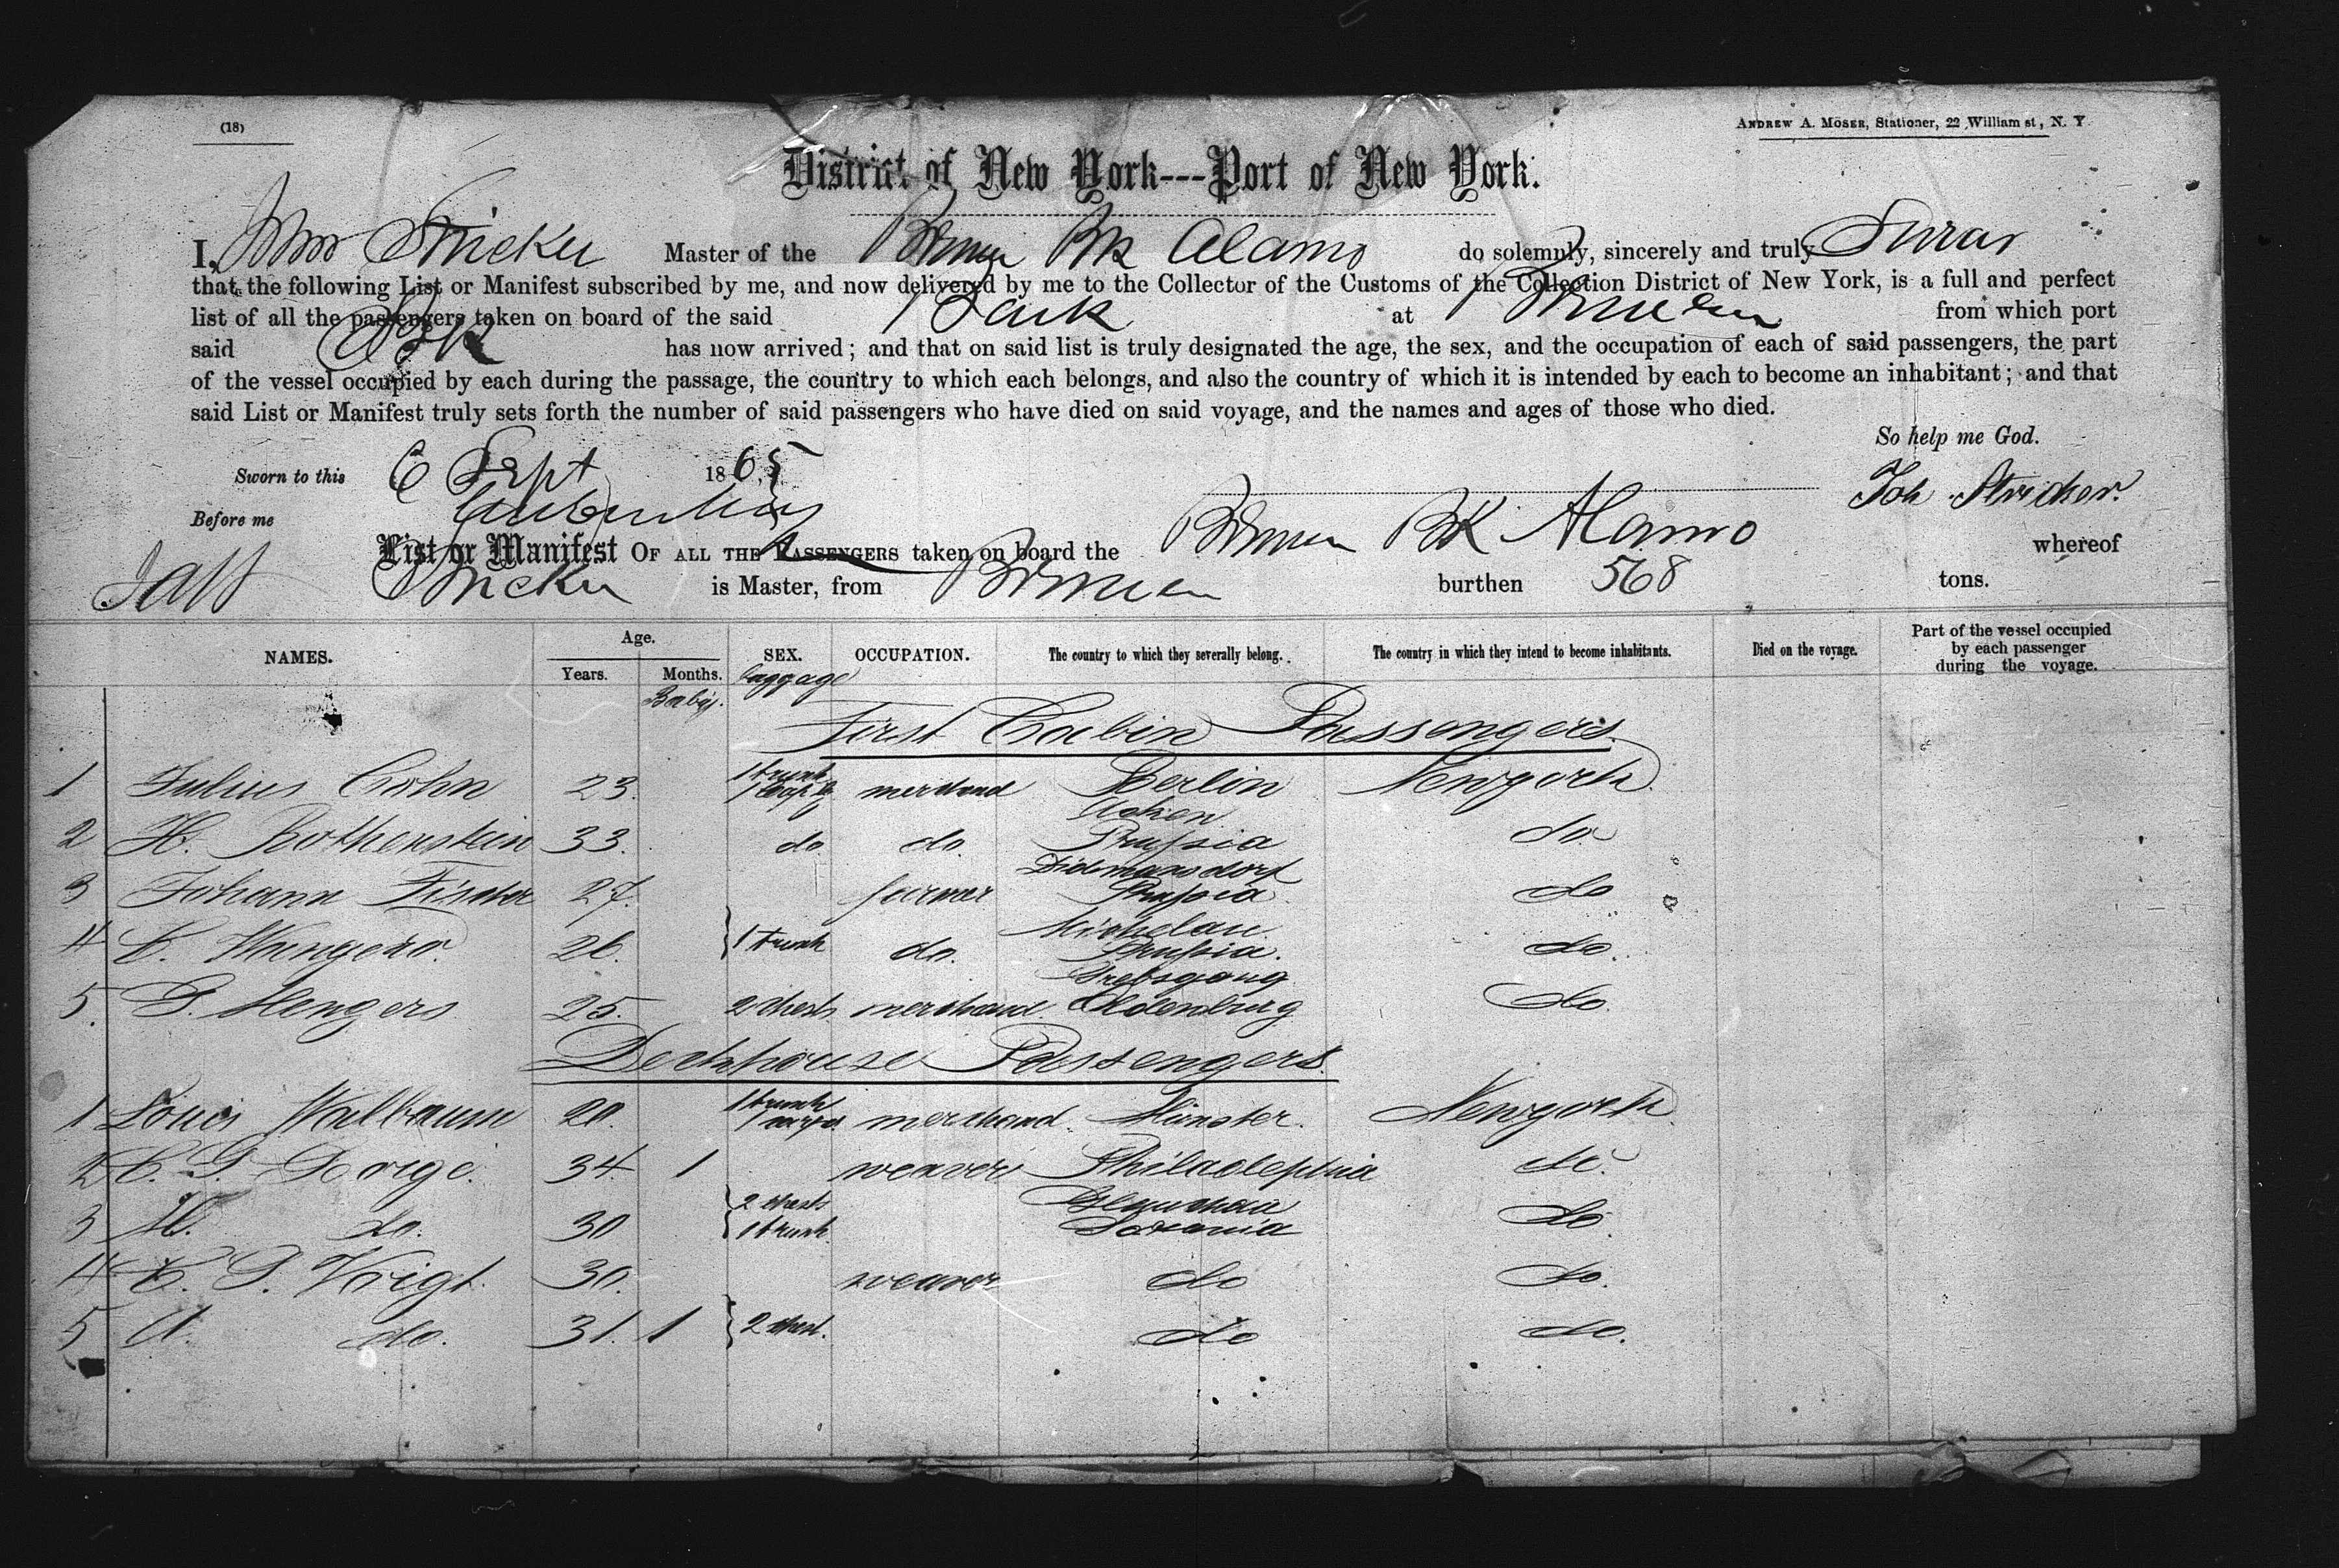 (18)
ANDREW A. MOSER, Stationer, 22 William st, N. Y
District of New York---Port of New York.
I, Stricker Master of the Bremen Bk Alamo do solemnly, sincerely and truly Swear
that the following List or Manifest subscribed by me, and now delivered by me to the Collector of the Customs of the Collection District of New York, is a full and perfect
list of all the passengers taken on board of the said Bark at Bremen from which port
said Bk has now arrived; and that on said list is truly designated the age, the sex, and the occupation of each of said passengers, the part
of the vessel occupied by each during the passage, the country to which each belongs, and also the country of which it is intended by each to become an inhabitant; and that
said List or Manifest truly sets forth the number of said passengers who have died on said voyage, and the names and ages of those who died.
So help me God.
Sworn to this 6 Sept 1865
Joh Stricker.
Before me
List or Manifest OF ALL THE PASSENGERS taken on board the Bremen Bk Alamo whereof
Stricker is Master, from Bremen burthen 568 tons.
NAMES. Age. Years. Months. SEX. OCCUPATION. The country to which they severally belong. The country in which they intend to become inhabitants. Died on the voyage. Part of the vessel occupied by each passenger during the voyage.
Babys. baggage
First Cabin Passengers
1 Julius Cohn 23. 1 trunk merchand Berlin Newyork.
Achen
2 H. Rothenstein 33. do do. Prussia do.
3 Johann Fischer 27. farmer Prussia do
Michelau
4 26. 1 trunk do. Prussia. do.
5. Hengers 25. 2 chests merchand Oldenburg do.
Deckhouse Passengers.
1 Louis Walbaum 20. 1 trunk merchand. Münster. Newyork
2 34. 1 weaver Philadelphia do.
2 chests Glauchau
3 do. 30 1 trunk. Saxonia do.
4 Voigt. 30. weaver do do.
5 do. 31. 1 2 chest. do do.